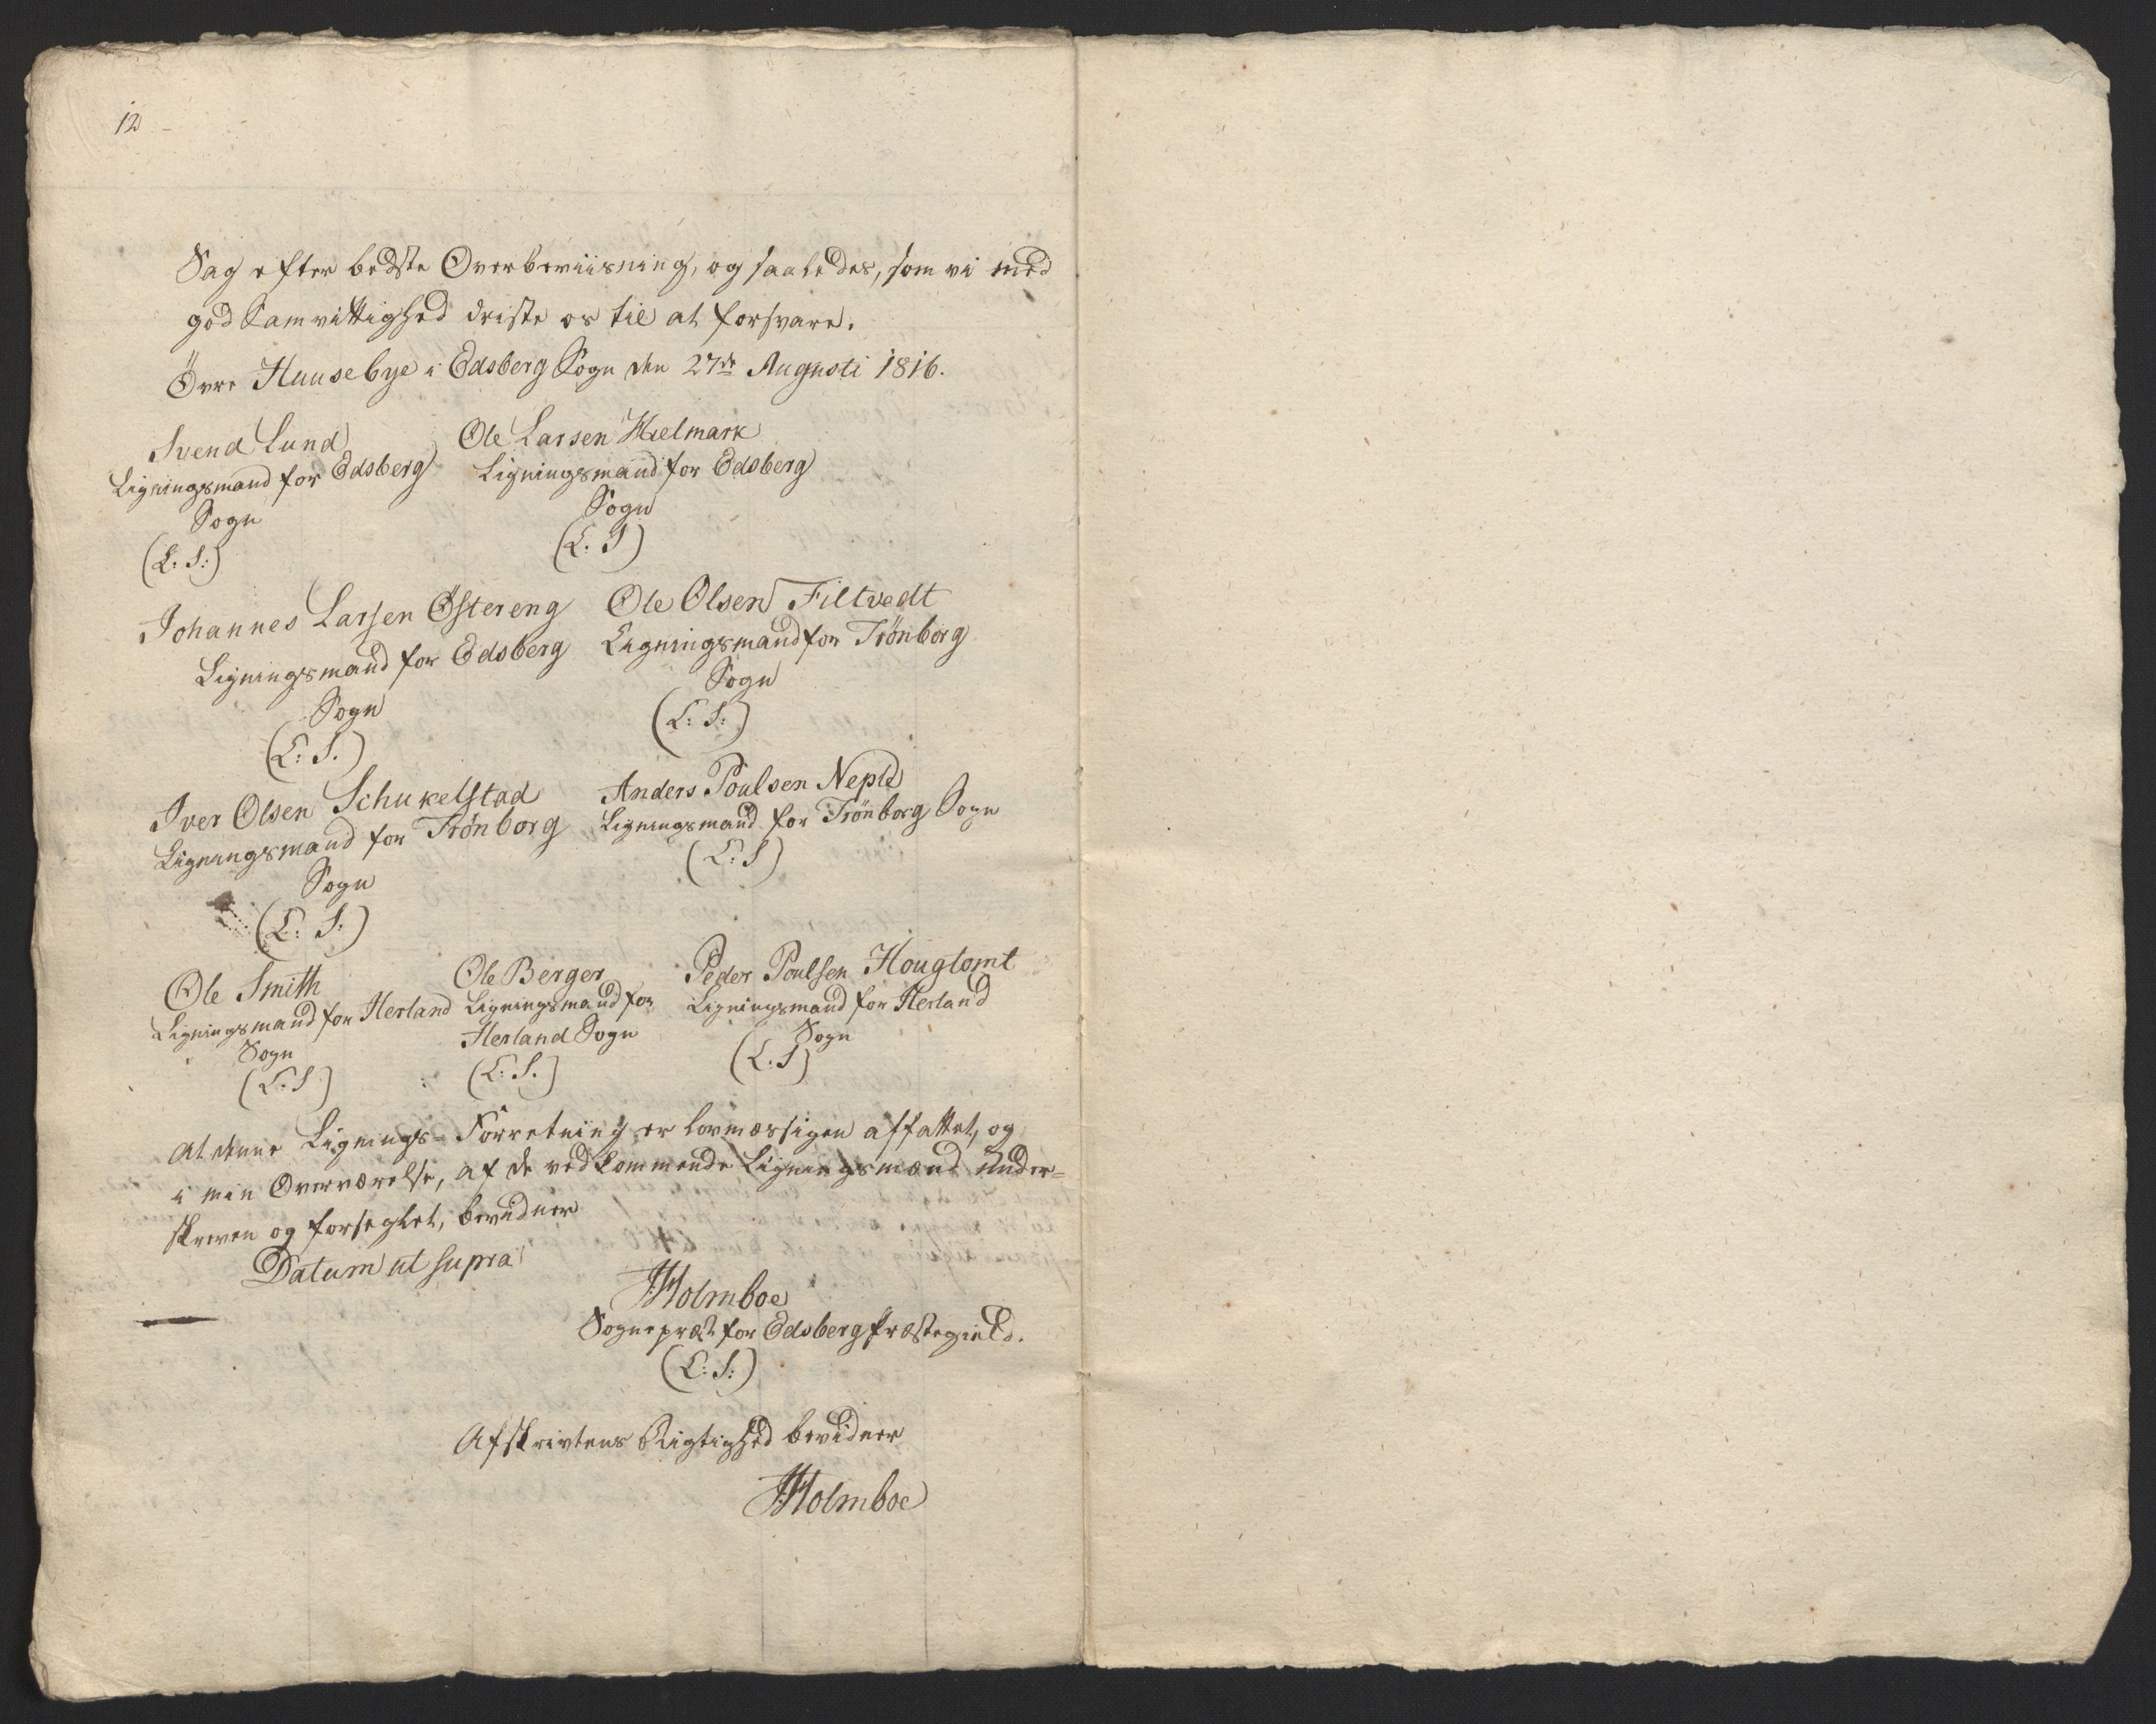 12
Sag efter bedste Overbeviisning, og saaledes, som vi med
god Samvittighed driste os til at forsvare.
Övre Huusebye i Edsberg Sogn den 27de Augusti 1816.
Svend Lund
Ligningsmand for Edsberg
Sogn
(L: S:)
Ole Larsen Mielmark
Ligningsmand for Edsberg
Sogn
(L. S)
Johannes Larsen Østereng
Ligningsmand for Edsberg
Sogn
(L: S.)
Ole Olsen Filtvedt
Ligningsmand for Trönborg
Sogn
(L: S:)
Iver Olsen Schukelstad
Ligningsmand for Trönborg
Sogn
(L: S:)
Anders Poulsen Neple
Ligningsmand for Trönborg Sogn
(L: S)
Ole Smith
Ligningsmand for Herland
Sogn
(L: S)
Ole Berger
Ligningsmand for
Herland Sogn
(L: S.)
Peder Poulsen Houglomt
Ligningsmand for Herland
Sogn
(L: S)
At denne Lignings-Forretning er lovmæssigen affattet, og
i min Overværelse, af de vedkommende Ligningsmænd under-
skreven og forseglet, bevidner
Datum ut supra
JHolmboe
Sognepræst for Edsberg Præstegield.
(L: S:)
Afskrivtens Rigtighed bevidner
JHolmboe